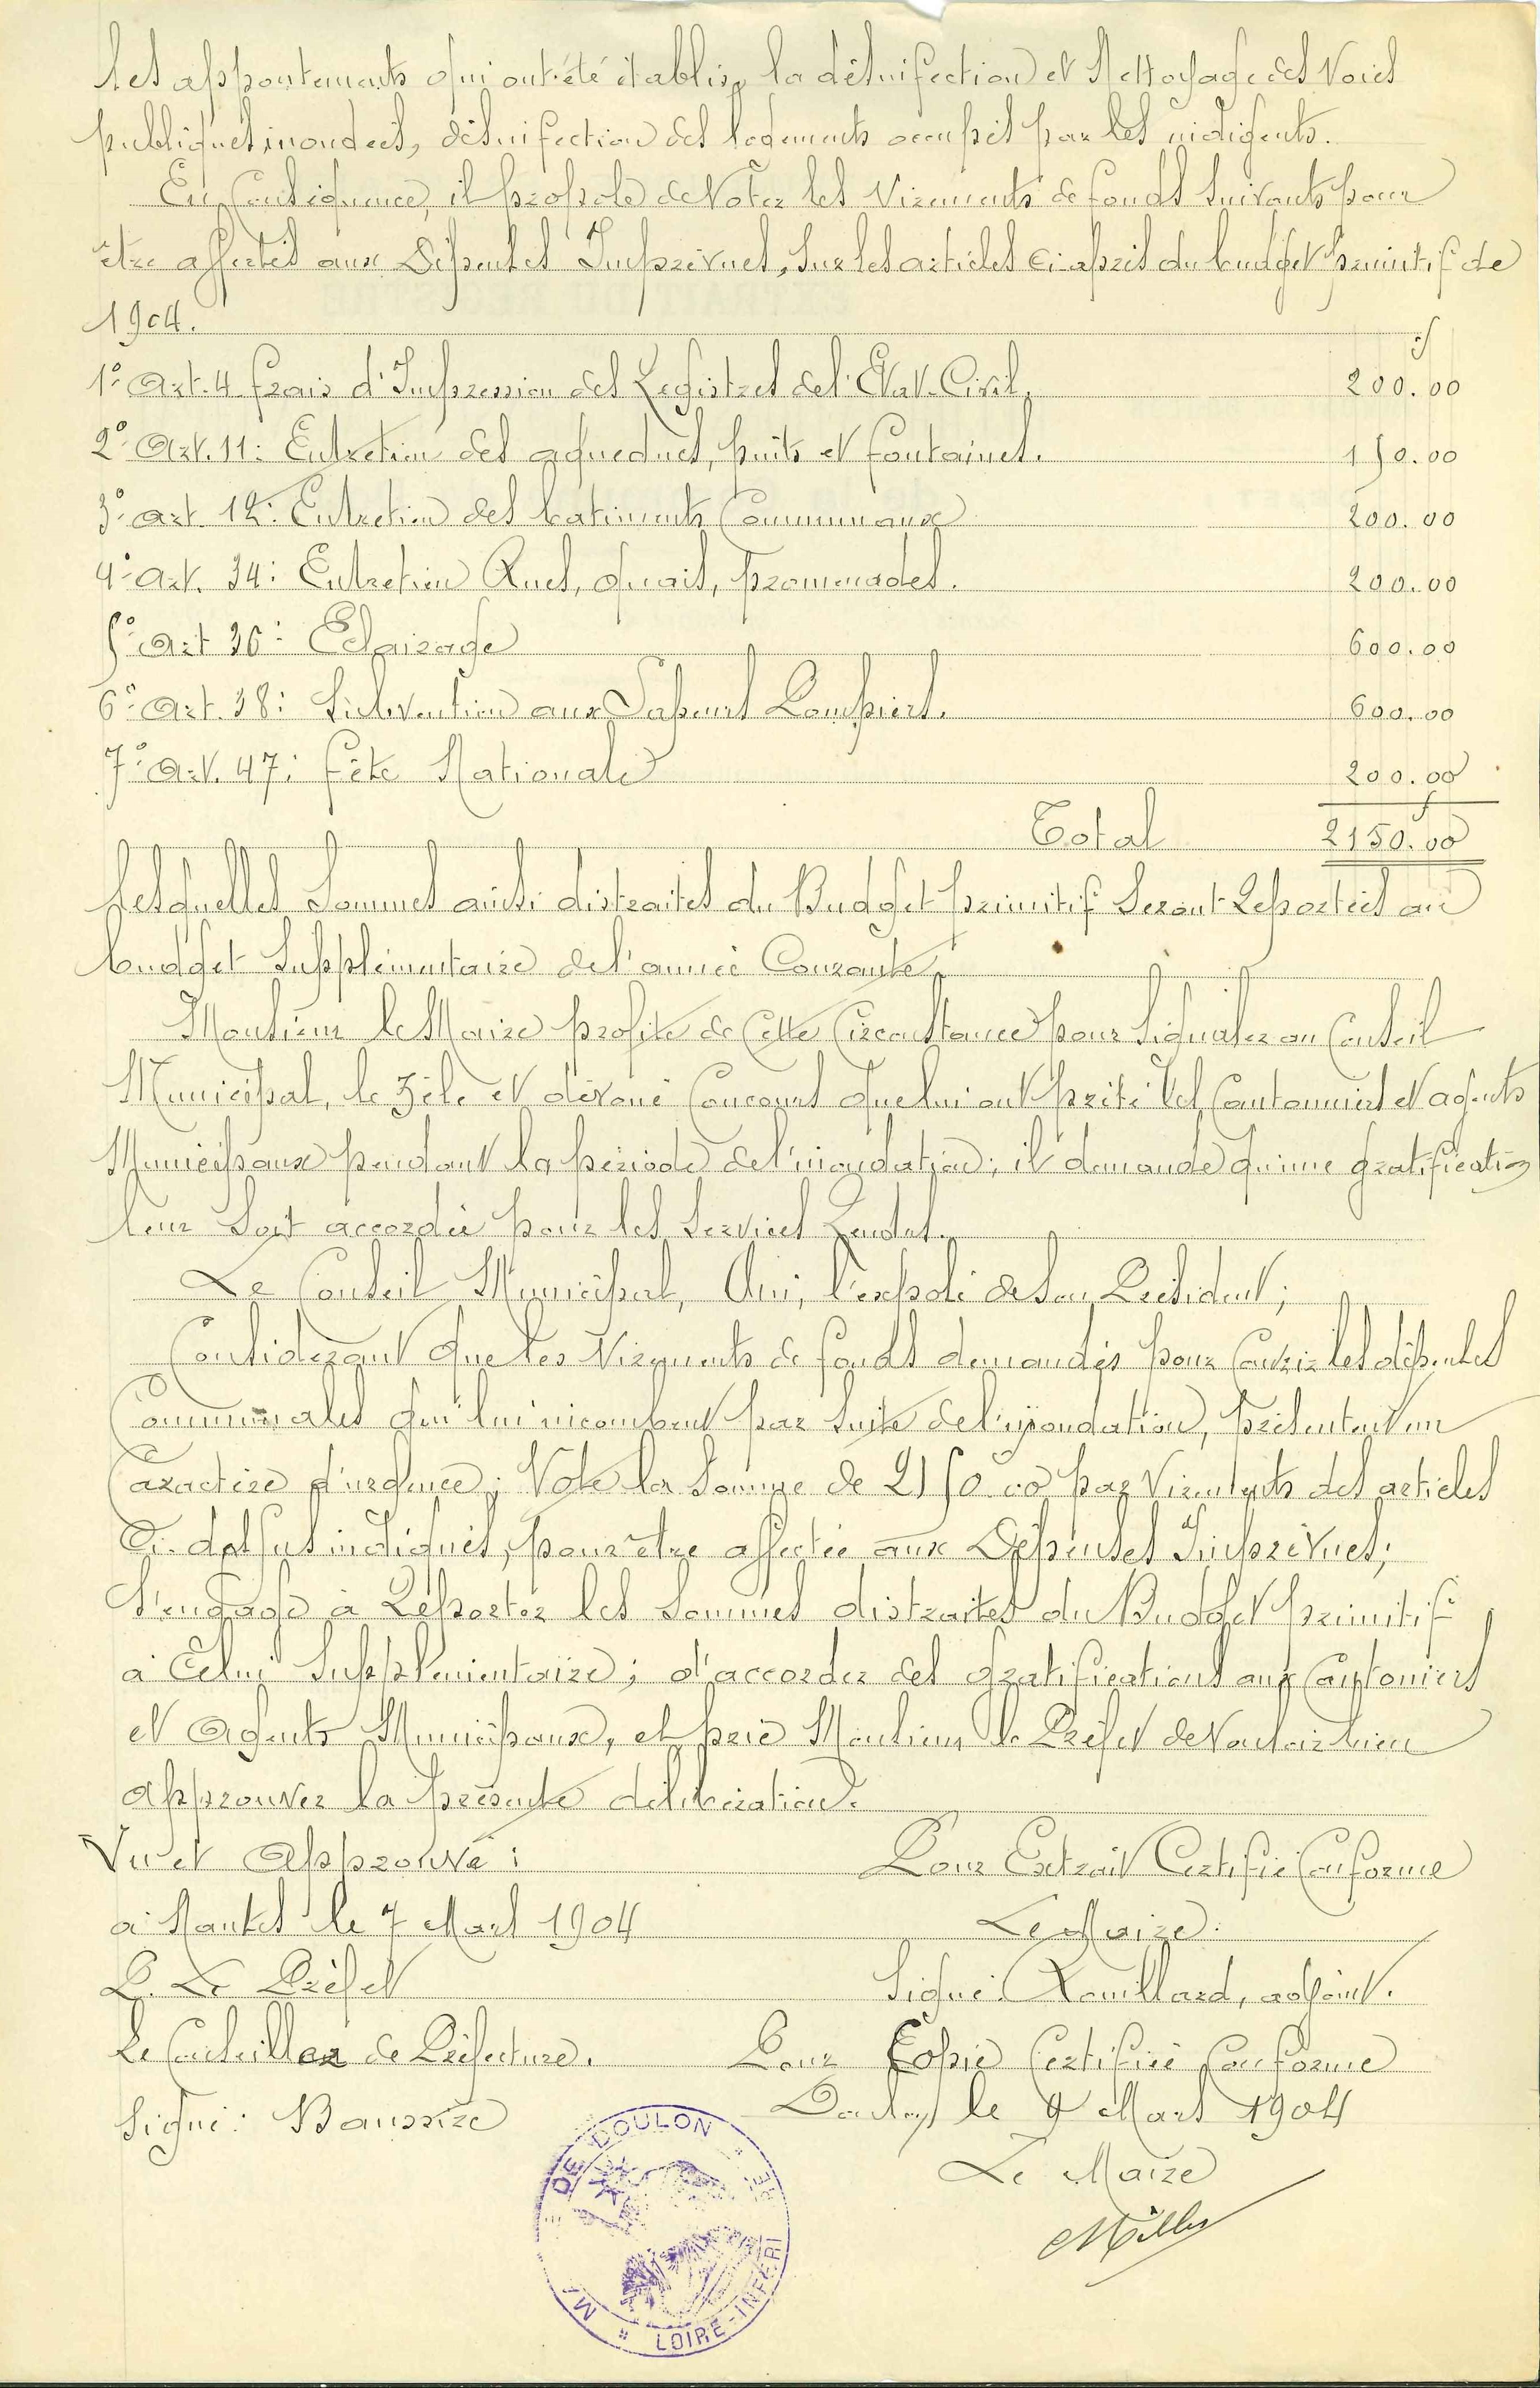 les appontements qui ont été établis, la désinfection et Nettoyage des Voies
publiques inondées, désinfection des logements occupés par les indigents.
En Conséquence, il propose de Voter les Virements de fonds suivants pour
être affectés aux Dépenses Imprévues, sur les articles Ci après du budget primitif de
1904.
f
1° Art. 4 frais d'Impression des Registres de l'Etat-Civil. 200.00
2° Art. 11: Entretien des aqueducs, puits et fontaines. 150.00
3° art. 12: Entretien des batiments Communaux 200.00
4° art. 34: Entretien Rues, quais, promenades. 200.00
5° Art 36: Eclairage 600.00
6° Art. 38: Subvention aux Sapeurs Pompiers. 600.00
7° Art. 47: fête Nationale 200.00
Total 2150.00
f
Lesquelles Sommes ainsi distraites du Budget primitif Seront Reportées au
budget Supplémentaire de l'année Courante.
Monsieur le Maire profite de Cette Circonstance pour Signaler au Conseil
Municipal, le zèle et dévoué Concours que lui ont prêté les Cantonniers et agents
Municipaux pendant la période de l'inondation; il demande qu'une gratification
leur soit accordée pour les Services Rendus.
Le Conseil Municipal, Oui, l'exposé de son Président;
Considérant que les Virements de fonds demandés pour Couvrir les dépenses
Communales qui lui incombent par suite de l'inondation, présentent un
Caractère d'urgence; Vote la Somme de 2150.00 par Virements des articles
Ci-dessus indiqués, pour être affectée aux Dépenses Imprévues;
s'engage à Reporter les Sommes distraites du Budget primitif
à Celui Supplémentaire; d'accorder des gratifications aux Cantoniers
et Agents Municipaux, et prie Monsieur le Préfet de Vouloir bien
approuver la présente délibération.
Vu et Approuvé: Pour Extrait Certifié Conforme
à Nantes le 7 Mars 1904 Le Maire:
P. Le Préfet Signé: Rouillard, adjoint.
Le Conseiller de Préfecture. Pour Copie Certifiée Conforme
Signé: Baussire Doulon le 9 Mars 1904
Le Maire
DE DOULON
LOIRE-INFÉRI RE
MA